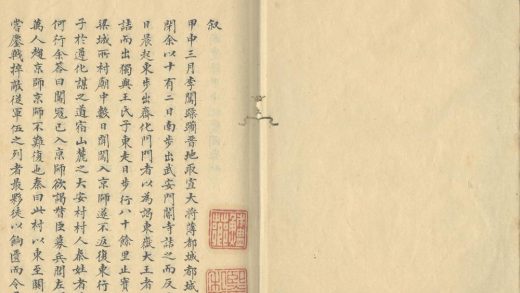 叙
甲申三月李闖蹂躪晉地取宣大將薄都城都城
閉余以十有二日南步出武安門闍寺詰之而反
日晨起東步出齊化門門者以為謁東嶽大王者
詰而出獨與王氏子東走日步行八十餘里止寶
梁城所村廟中數日聞闖入京師遂不返復東行
子於遵化謀之道宿山麓之大安村村人秦姓者
何行余荅曰闖寇已入京師欲謁督臣募兵關左
萬人趨京師京師不難復也秦曰此村以東至關
嘗鏖戰摔敵從軍伍之列者最夥徒以餉匱而令